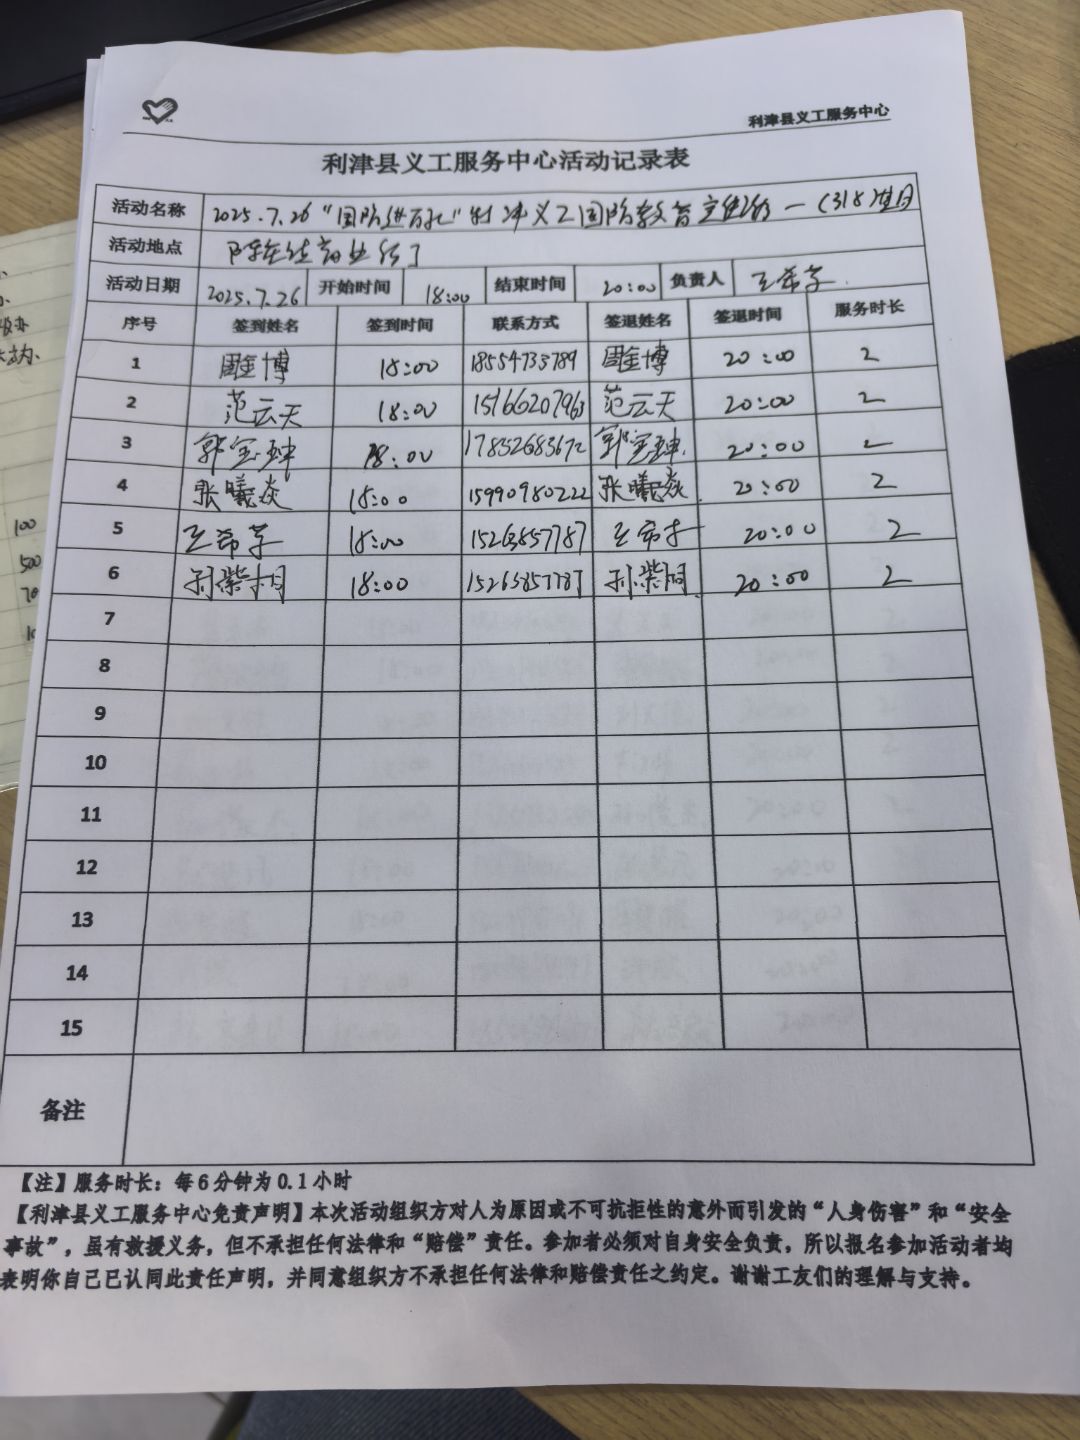 利津县义工服务中心
利津县义工服务中心活动记录表
活动名称 2025.7.26“国防进万家”利津义工国防教育宣传活动一(318)望月
活动地点
活动日期 2025.7.26 开始时间 18:00 结束时间 20:00 负责人 王希孚
序号 签到姓名 签到时间 联系方式 签退姓名 签退时间 服务时长
1 周金博 18:00 18554733789 周金博 20:00 2
2 范云天 18:00 15166207963 范云天 20:00 2
3 郭宝珅 18:00 17852683672 郭宝珅 20:00 2
4 张曦焱 18:00 15990980222 张曦焱 20:00 2
5 王希孚 18:00 15263857787 王希孚 20:00 2
6 孙紫桐 18:00 15263857787 孙紫桐 20:00 2
7
8
9
10
11
12
13
14
15
备注
【注】服务时长：每6分钟为0.1小时
【利津县义工服务中心免责声明】本次活动组织方对人为原因或不可抗拒性的意外而引发的“人身伤害”和“安全
事故”，虽有救援义务，但不承担任何法律和“赔偿”责任。参加者必须对自身安全负责，所以报名参加活动者均
表明你自己已认同此责任声明，并同意组织方不承担任何法律和赔偿责任之约定。谢谢工友们的理解与支持。
100
500